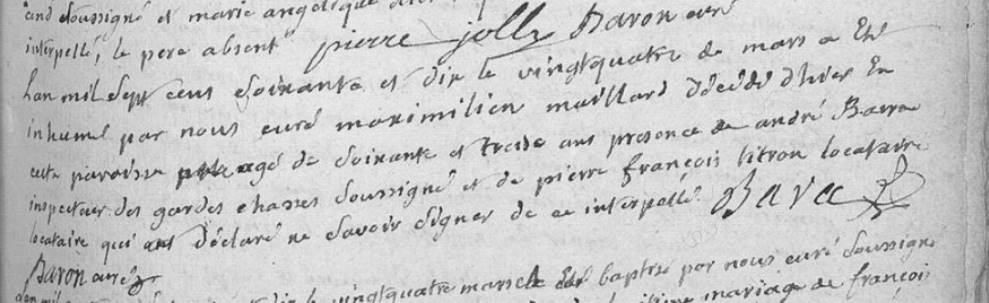 and soussigné et marie angelique
interpellé, le pere absent pierre jolly Baron curé
Lan mil sept cens soixante et dix le vingtquatre de mars a Eté
inhumé par nous curé maximilien maillard décédé d'hier En
cette paroisse agé de soixante et treise ans presence de andré Bava
inspecteur des gardes chasses soussigné et de pierre françois litron locataire
locataire qui ont déclaré ne savoir signer de ce interpellé. Bava
Baron curé
dix le vingtquatre mars Eté baptisé par nous curé soussigné
mariage de françois